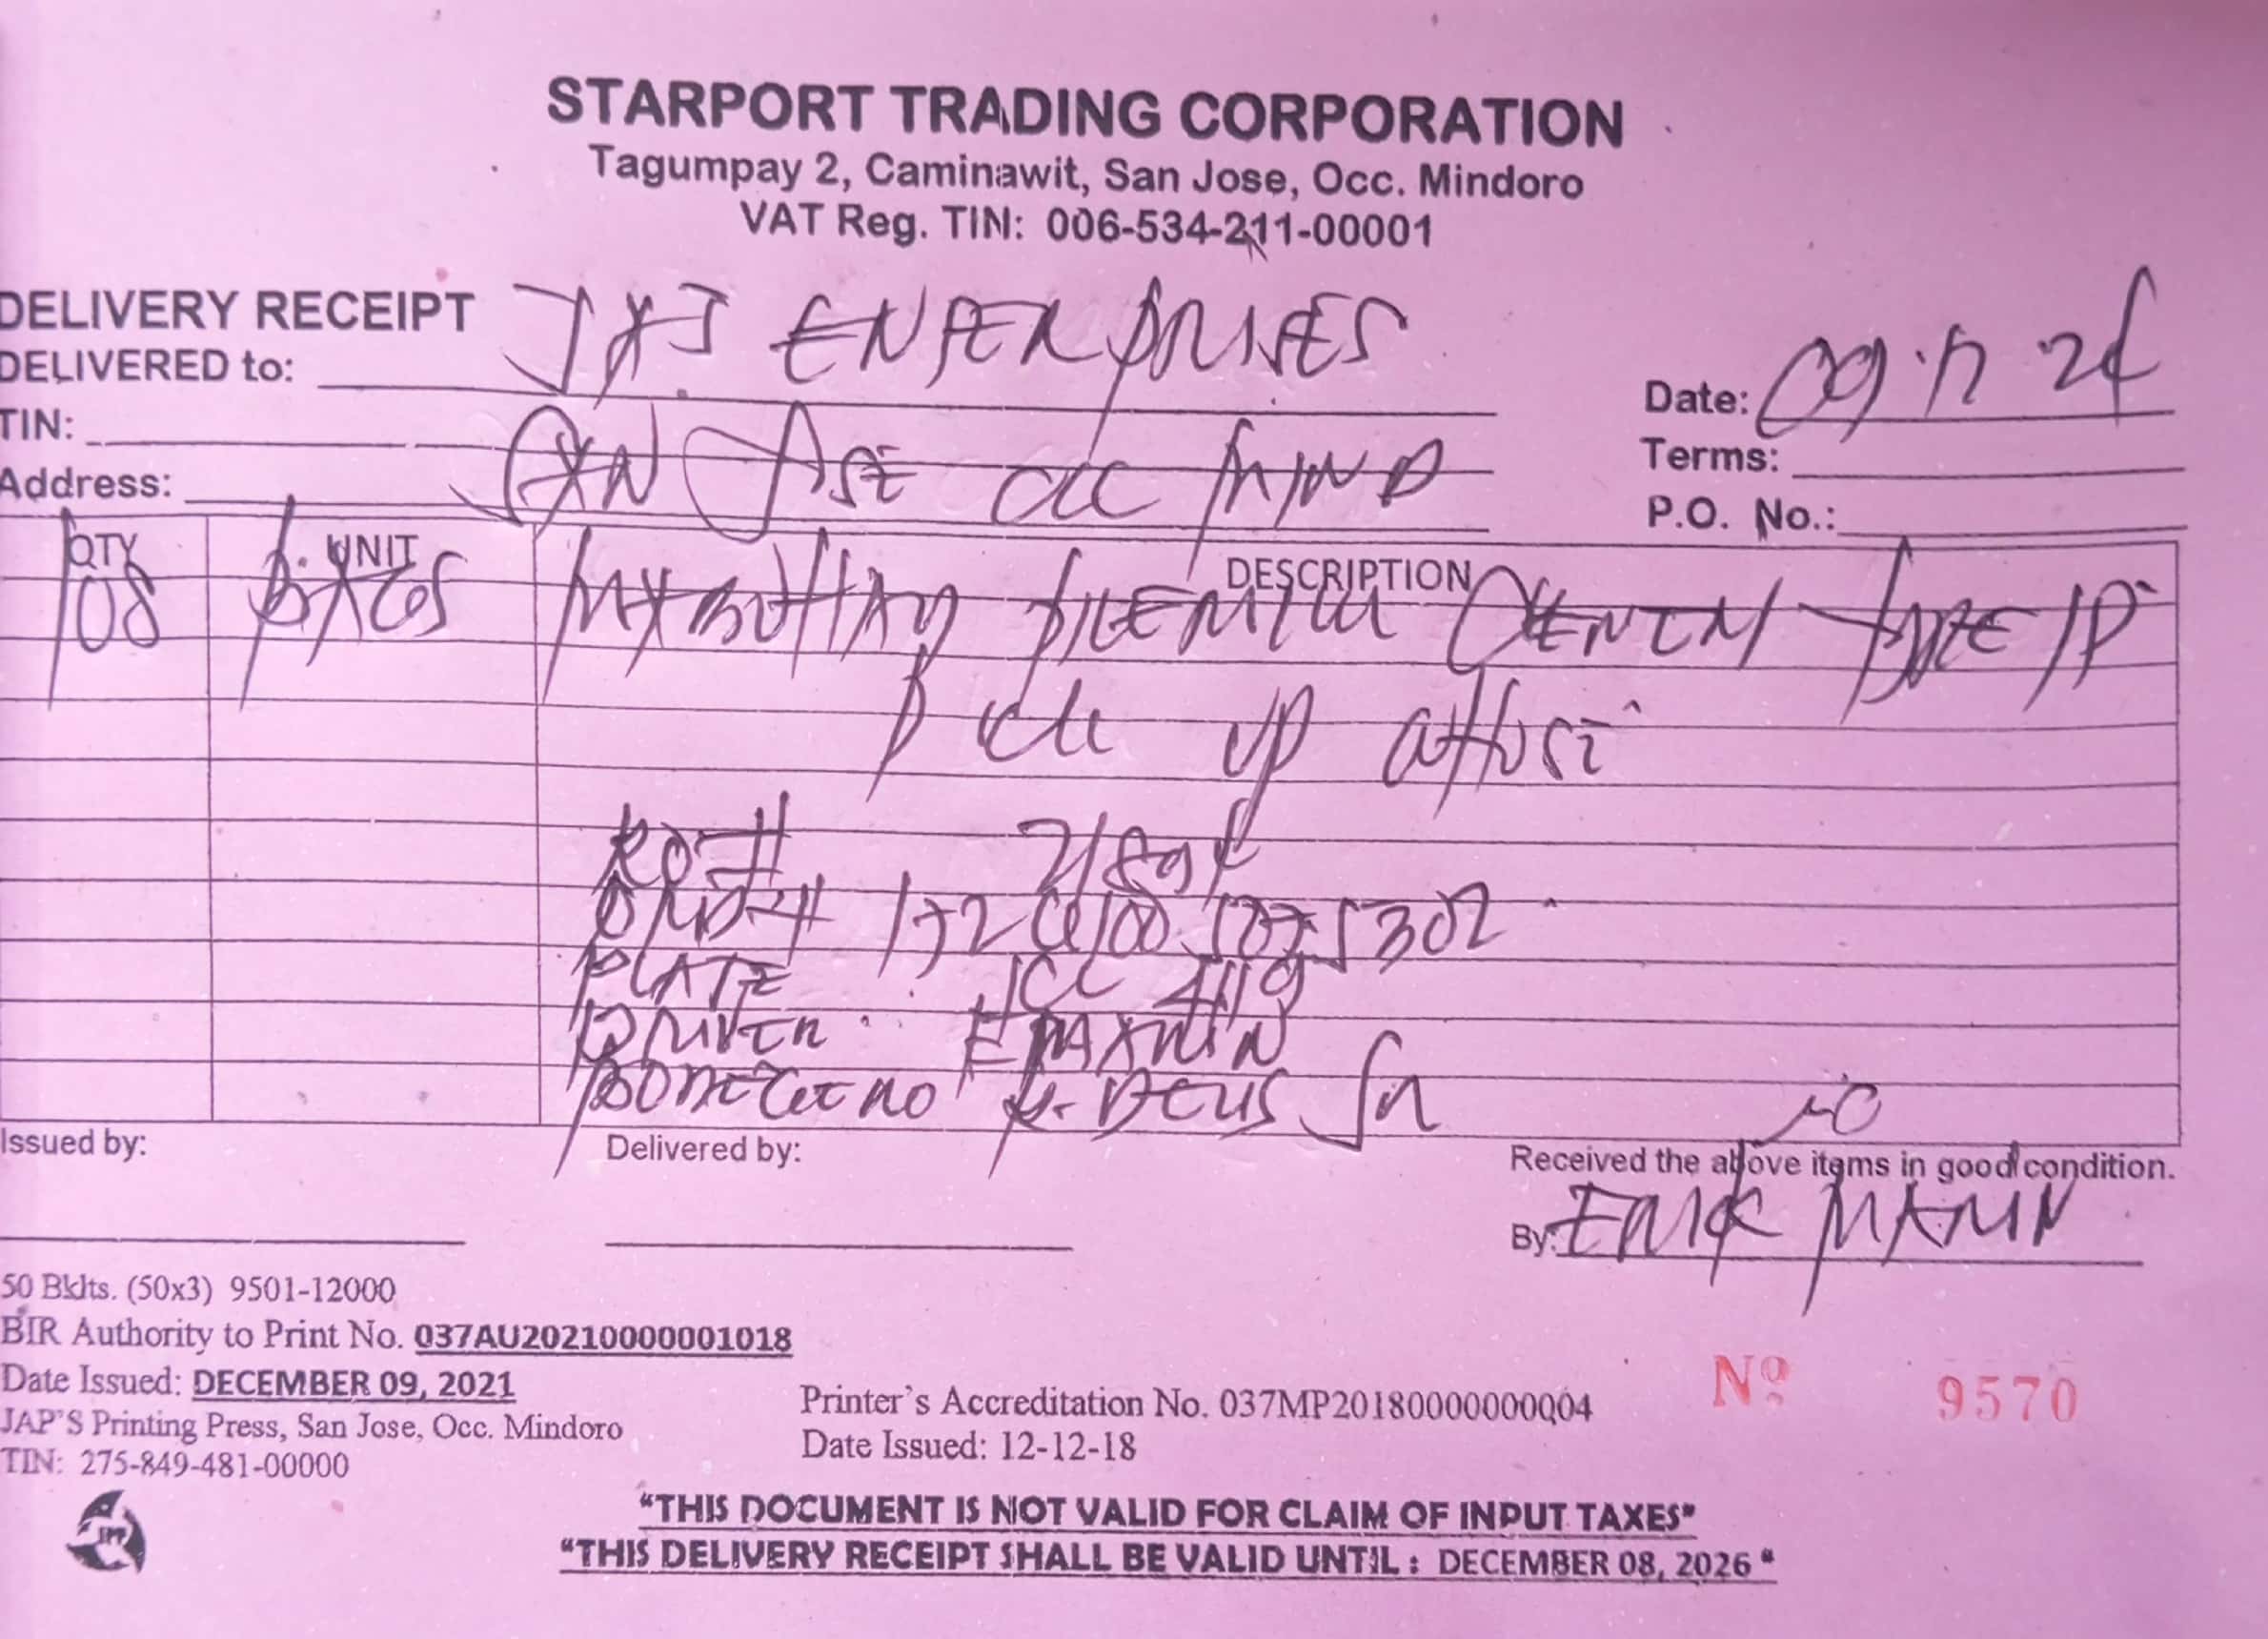 STARPORT TRADING CORPORATION
Tagumpay 2, Caminawit, San Jose, Occ. Mindoro
VAT Reg. TIN: 006-534-211-00001
DELIVERY RECEIPT
DELIVERED to: J&J ENTERPRISES
Date: 09
TIN:
Terms:
Address: SAN JOSE OCC MIND
P.O. No.:
QTY UNIT DESCRIPTION
BAGS PREMIUM CEMENT TYPE 1P
Pick up
PLATE 4119
DRIVER
Issued by:
Delivered by:
Received the above items in good condition.
By: ERICK MARIN
50 Bklts. (50x3) 9501-12000
BIR Authority to Print No. 037AU20210000001018
Date Issued: DECEMBER 09, 2021
JAP'S Printing Press, San Jose, Occ. Mindoro
TIN: 275-849-481-00000
Printer's Accreditation No. 037MP20180000000004
Date Issued: 12-12-18
Nº 9570
JPP
"THIS DOCUMENT IS NOT VALID FOR CLAIM OF INPUT TAXES"
"THIS DELIVERY RECEIPT SHALL BE VALID UNTIL : DECEMBER 08, 2026 "